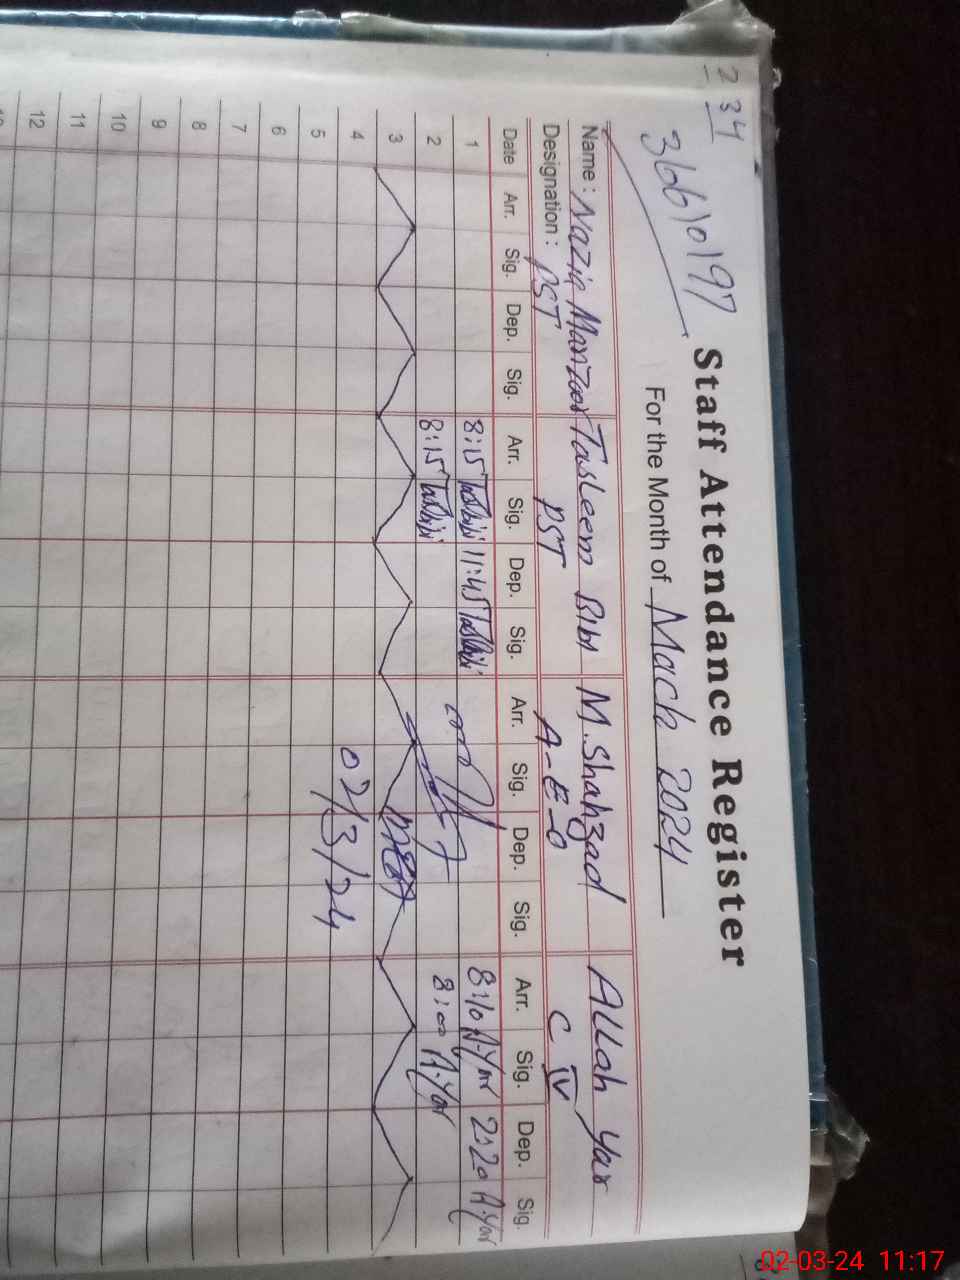 234
36610197
Staff Attendance Register
For the Month of Mach 2024
Name: Nazia Manzoor Tasleem Bibi M.Shahzad Allah Yar
Designation: PST PST A-E-O C IV
Date Arr. Sig. Dep. Sig. Arr. Sig. Dep. Sig. Arr. Sig. Dep. Sig. Arr. Sig. Dep. Sig.
1 8:15 Tasbibi 11:45 Tasbibi 8:10 A.Yar 2:20 A.Yar
2 8:15 Tasbibi 8:00 A.Yar
3
4 02/3/24
5
6
7
8
9
10
11
12
02-03-24 11:17